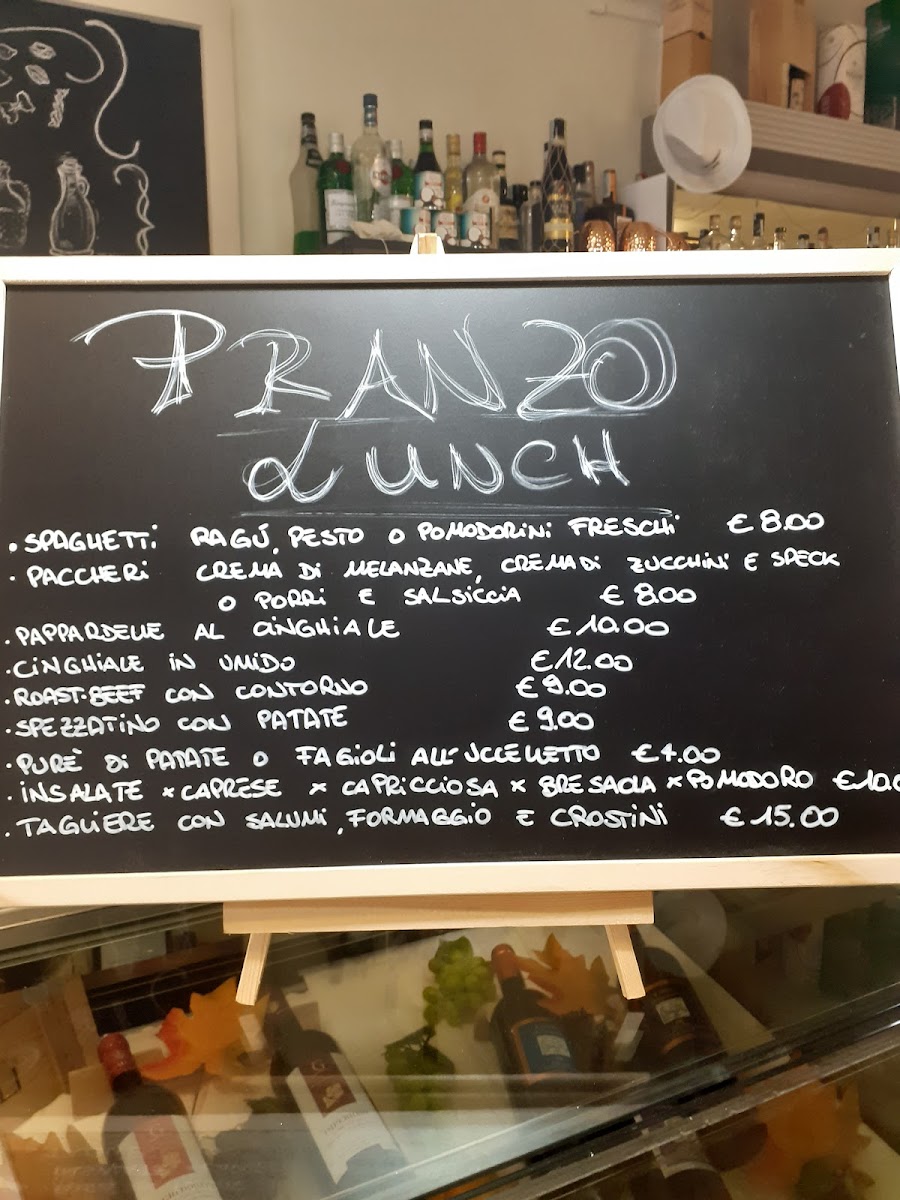 PRANZO
LUNCH
• SPAGHETTI RAGÚ, PESTO O POMODORINI FRESCHI € 8.00
• PACCHERI CREMA DI MELANZANE, CREMA DI ZUCCHINI E SPECK
O PORRI E SALSICCIA € 8.00
• PAPPARDELLE AL CINGHIALE € 10.00
• CINGHIALE IN UMIDO € 12.00
• ROAST-BEEF CON CONTORNO € 9.00
• SPEZZATINO CON PATATE € 9.00
• PURÈ DI PATATE O FAGIOLI ALL'UCCELLETTO € 4.00
• INSALATE × CAPRESE × CAPRICCIOSA × BRESAOLA × POMODORO €10.0
• TAGLIERE CON SALUMI, FORMAGGIO E CROSTINI € 15.00